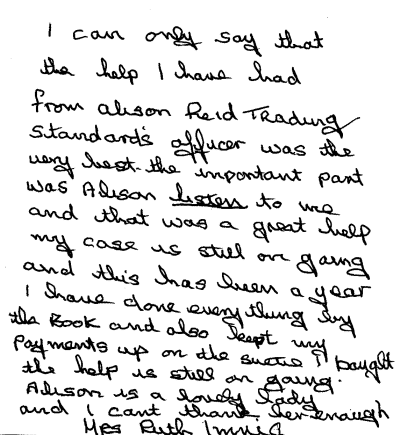 I can only say that
the help I have had
from alison Reid Trading
Standards officer was the
very best. the important part
was Alison listen to me
and that was a great help
my case is still on gaing
and this has been a year
I have done everything by
the Book and also kept my
Payments up on the suetie I bought
the help is still on gaing.
Alison is a lovely lady
and I cant thank her enough
Mrs Ruth